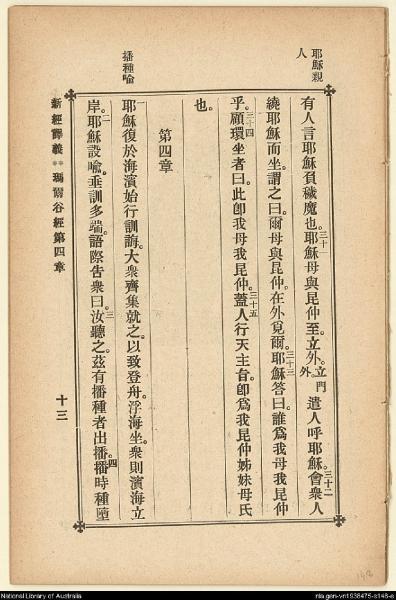 耶穌親
人
有人言耶穌負穢魔也。三十一耶穌母與昆仲至。立外。立門外。遣人呼耶穌。三十二會衆人
繞耶穌而坐。謂之曰。爾母與昆仲。在外覓爾。三十三耶穌答曰。誰爲我母我昆仲
乎。三十四顧環坐者曰。此卽我母我昆仲。三十五蓋人行天主旨。卽爲我昆仲姊妹母氏
也。
第四章
播種喻
一耶穌復於海濱始行訓誨。大衆齊集就之。以致登舟。浮海坐。衆則濱海立
岸。二耶穌設喩。垂訓多端。語際吿衆曰。三汝聽之。茲有播種者出播。四播時種墮
新經譯義 瑪爾谷經第四章
十三
National Library of Australia
nla.gen-vn1938475-s148-e